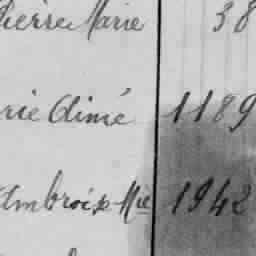 Pierre Marie 38
rie Aimé 1189
Ambroix Mie 1942